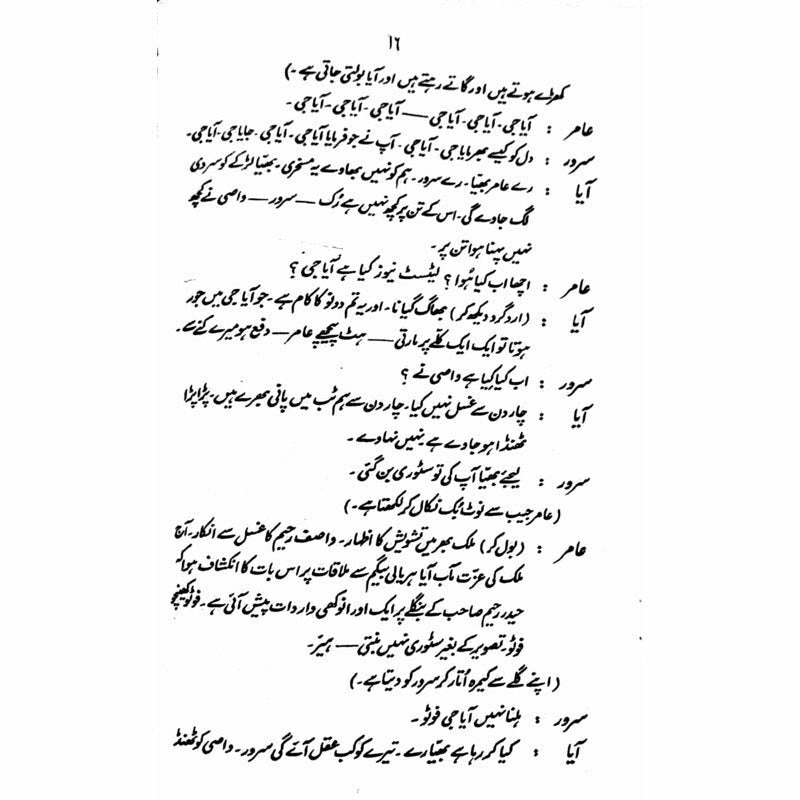 ۱۶
کھڑے ہوتے ہیں اور گاتے رہتے ہیں اور آیا بولتی جاتی ہے ۔)
عامر : آیا جی ۔ آیا جی ۔ آیا جی —— آیا جی ۔ آیا جی ۔ آیا جی ۔
سرور : دل کو کیسے بھریا جی ۔ آیا جی ۔ آپ نے جو فرمایا آیا جی ۔ آیا جی ۔ جایا جی ۔ آیا جی ۔
آیا : رے عامر بھیّا ۔ رے سرور ۔ ہم کو نہیں بھاوے یہ مسخری ۔ بھیّا لڑکے کو سردی
لگ جاوے گی ۔ اس کے تن پر کچھ نہیں ہے رُک — سرور — واصی نے کچھ
نہیں پہنا ہوا تن پر ۔
عامر : اچھا اب کیا ہُوا ؟ لیٹسٹ نیوز کیا ہے آیا جی ؟
آیا : (ارد گرد دیکھ کر) بھاگ گیا نا ۔ اور یہ تم دونو کا کام ہے ۔ جو آیا جی میں جور
ہوتا تو ایک ایک کلّے پر مارتی —— ہٹ پیچھے عامر — دفع ہو میرے کنے سے ۔
سرور : اب کیا کِیا ہے واصی نے ؟
آیا : چار دن سے غسل نہیں کیا ۔ چار دن سے ہم ٹب میں پانی بھرے ہیں ۔ پڑا پڑا
ٹھنڈا ہو جاوے ہے ۔ نہیں نہاوے ۔
سرور : لیجئے بھیّا آپ کی تو سٹوری بن گئی ۔
(عامر جیب سے نوٹ بُک نکال کر لکھتا ہے ۔)
عامر : (بول کر) ملک بھر میں تشویش کا اظہار ۔ واصف رحیم کا غسل سے انکار ۔ آج
ملک کی عزّت مآب آیا ہریالی بیگم سے ملاقات پر اس بات کا انکشاف ہوا کہ
حیدر رحیم صاحب کے بنگلے پر ایک اور انوکھی واردات پیش آئی ہے ۔ فوٹو کھینچو
فوٹو ۔ تصویر کے بغیر سٹوری نہیں بنتی —— ہیئر ۔
(اپنے گلے سے کیمرہ اُتار کر سرور کو دیتا ہے ۔)
سرور : ہلنا نہیں آیا جی فوٹو ۔
آیا : کیا کر رہا ہے بھیّارے ۔ تیرے کو کب عقل آئے گی سرور ۔ واصی کو ٹھنڈ